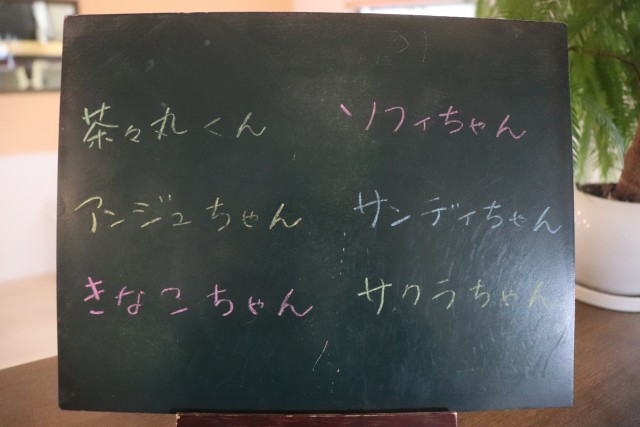 茶々丸くん
アンジュちゃん
きなこちゃん
ソフィちゃん
サンディちゃん
サクラちゃん